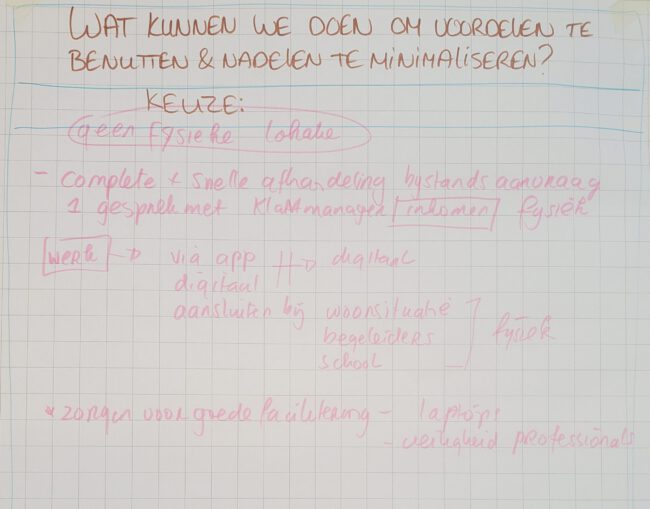 WAT KUNNEN WE DOEN OM VOORDELEN TE
BENUTTEN & NADELEN TE MINIMALISEREN?
KEUZE:
geen fysieke lokatie
- complete + snelle afhandeling bystands aanvraag
1 gesprek met klantmanager inkomen fysiek
werk → via app → digitaal
digitaal
aansluiten bij woonsituatie
begeleiders fysiek
school
* zorgen voor goede facilitering - laptops
- veiligheid professionals